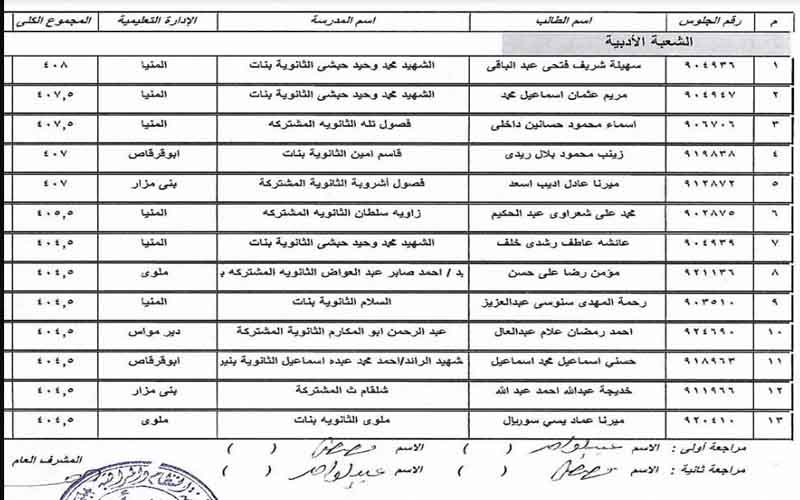 م رقم الجلوس اسم الطالب اسم المدرسة الإدارة التعليمية المجموع الكلى
الشعبة الأدبية
١ ٩٠٤٩٣٦ سهيلة شريف فتحى عبد الباقى الشهيد محمد وحيد حبشى الثانوية بنات المنيا ٤٠٨
٢ ٩٠٤٩٤٧ مريم عثمان اسماعيل محمد الشهيد محمد وحيد حبشى الثانوية بنات المنيا ٤٠٧,٥
٣ ٩٠٦٧٠٦ اسماء محمود حسانين داخلى فصول تله الثانويه المشتركه المنيا ٤٠٧,٥
٤ ٩١٩٨٣٨ زينب محمود بلال ريدى قاسم امين الثانوية بنات ابوقرقاص ٤٠٧
٥ ٩١٢٨٧٢ ميرنا عادل اديب اسعد فصول أشروبة الثانوية المشتركة بنى مزار ٤٠٧
٦ ٩٠٢٨٧٥ محمد على شعراوى عبد الحكيم زاويه سلطان الثانويه المشتركه المنيا ٤٠٥,٥
٧ ٩٠٤٩٣٩ عائشه عاطف رشدى خلف الشهيد محمد وحيد حبشى الثانوية بنات المنيا ٤٠٥,٥
٨ ٩٢١١٣٦ مؤمن رضا على حسن يد / احمد صابر عبد العواض الثانويه المشتركه ب ملوى ٤٠٥,٥
٩ ٩٠٣٥١٠ رحمة المهدى سنوسى عبدالعزيز السلام الثانوية بنات المنيا ٤٠٥,٥
١٠ ٩٢٤٦٩٠ احمد رمضان علام عبدالعال عبد الرحمن ابو المكارم الثانوية المشتركة دير مواس ٤٠٤,٥
١١ ٩١٨٩٦٣ حسني اسماعيل محمد اسماعيل شهيد الرائد/احمد محمد عبده اسماعيل الثانوية بنير ابوقرقاص ٤٠٤,٥
١٢ ٩١١٩٦٦ خديجة عبدالله احمد عبد الله شلقام ث المشتركة بنى مزار ٤٠٤,٥
١٣ ٩٢٠٤١٠ ميرنا عماد يسي سوريال ملوى الثانويه بنات ملوى ٤٠٤,٥
مراجعة أولى : الاسم ( ) الاسم ( )
المشرف العام
مراجعة ثانية : الاسم ( ) الاسم ( )